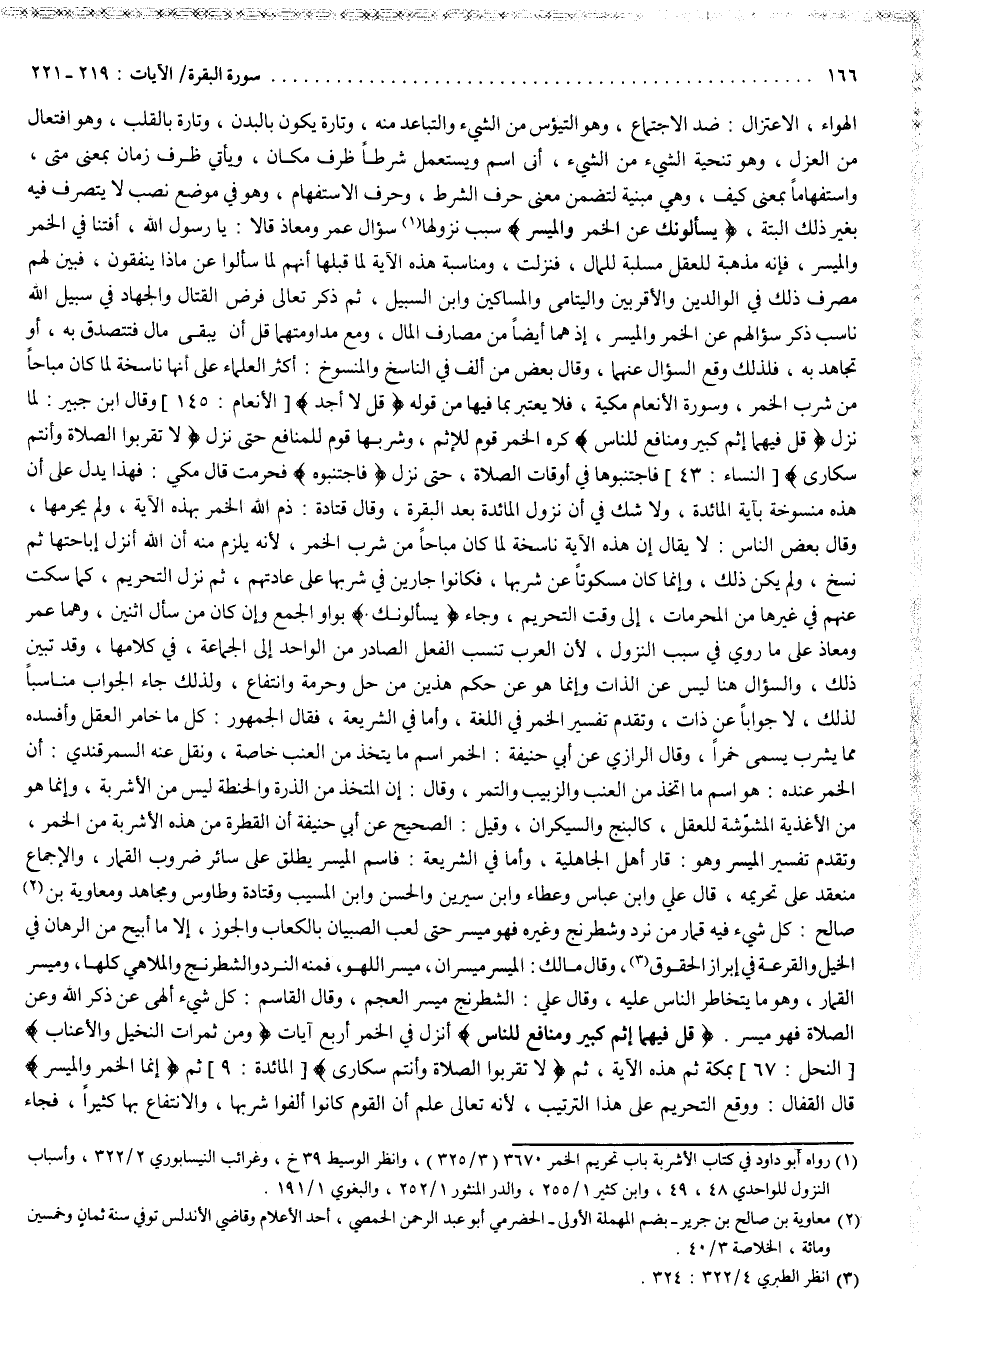 ١٦٦ ..................................................... سورة البقرة/ الآيات : ٢١٩ -٢٢١
الهواء ، الاعتزال : ضد الاجتماع ، وهو التيؤس من الشيء والتباعد منه ، وتارة يكون بالبدن ، وتارة بالقلب ، وهو افتعال
من العزل ، وهو تنحية الشيء من الشيء ، أنى اسم ويستعمل شرطاً ظرف مكان ، ويأتي ظرف زمان بمعنى متى ،
واستفهاماً بمعنى كيف ، وهي مبنية لتضمن معنى حرف الشرط ، وحرف الاستفهام ، وهو في موضع نصب لا يتصرف فيه
بغير ذلك البتة ، ﴿ يسألونك عن الخمر والميسر ﴾ سبب نزولها(١) سؤال عمر ومعاذ قالا : يا رسول الله ، أفتنا في الخمر
والميسر ، فإنه مذهبة للعقل مسلبة للمال ، فنزلت ، ومناسبة هذه الآية لما قبلها أنهم لما سألوا عن ماذا ينفقون ، فبين لهم
مصرف ذلك في الوالدين والأقربين واليتامى والمساكين وابن السبيل ، ثم ذكر تعالى فرض القتال والجهاد في سبيل الله
ناسب ذكر سؤالهم عن الخمر والميسر ، إذ هما أيضاً من مصارف المال ، ومع مداومتهما قل أن يبقى مال فتتصدق به ، أو
تجاهد به ، فلذلك وقع السؤال عنهما ، وقال بعض من ألف في الناسخ والمنسوخ : أكثر العلماء على أنها ناسخة لما كان مباحاً
من شرب الخمر ، وسورة الأنعام مكية ، فلا يعتبر بما فيها من قوله ﴿ قل لا أجد ﴾ [ الأنعام : ١٤٥ ] وقال ابن جبير : لما
نزل ﴿ قل فيهما إثم كبير ومنافع للناس ﴾ كره الخمر قوم للإثم ، وشربها قوم للمنافع حتى نزل ﴿ لا تقربوا الصلاة وأنتم
سكارى ﴾ [ النساء : ٤٣ ] فاجتنبوها في أوقات الصلاة ، حتى نزل ﴿ فاجتنبوه ﴾ فحرمت قال مكي : فهذا يدل على أن
هذه منسوخة بآية المائدة ، ولا شك في أن نزول المائدة بعد البقرة ، وقال قتادة : ذم الله الخمر بهذه الآية ، ولم يحرمها ،
وقال بعض الناس : لا يقال إن هذه الآية ناسخة لما كان مباحاً من شرب الخمر ، لأنه يلزم منه أن الله أنزل إباحتها ثم
نسخ ، ولم يكن ذلك ، وإنما كان مسكوتاً عن شربها ، فكانوا جارين في شربها على عادتهم ، ثم نزل التحريم ، كما سكت
عنهم في غيرها من المحرمات ، إلى وقت التحريم ، وجاء ﴿ يسألونك ﴾ بواو الجمع وإن كان من سأل اثنين ، وهما عمر
ومعاذ على ما روي في سبب النزول ، لأن العرب تنسب الفعل الصادر من الواحد إلى الجماعة ، في كلامها ، وقد تبين
ذلك ، والسؤال هنا ليس عن الذات وإنما هو عن حكم هذين من حل وحرمة وانتفاع ، ولذلك جاء الجواب مناسباً
لذلك ، لا جواباً عن ذات ، وتقدم تفسير الخمر في اللغة ، وأما في الشريعة ، فقال الجمهور : كل ما خامر العقل وأفسده
مما يشرب يسمى خمراً ، وقال الرازي عن أبي حنيفة : الخمر اسم ما يتخذ من العنب خاصة ، ونقل عنه السمرقندي : أن
الخمر عنده : هو اسم ما اتخذ من العنب والزبيب والتمر ، وقال : إن المتخذ من الذرة والحنطة ليس من الأشربة ، وإنما هو
من الأغذية المشوّشة للعقل ، كالبنج والسيكران ، وقيل : الصحيح عن أبي حنيفة أن القطرة من هذه الأشربة من الخمر ،
وتقدم تفسير الميسر وهو : قمار أهل الجاهلية ، وأما في الشريعة : فاسم الميسر يطلق على سائر ضروب القمار ، والإجماع
منعقد على تحريمه ، قال علي وابن عباس وعطاء وابن سيرين والحسن وابن المسيب وقتادة وطاوس ومجاهد ومعاوية بن(٢)
صالح : كل شيء فيه قمار من نرد وشطرنج وغيره فهو ميسر حتى لعب الصبيان بالكعاب والجوز ، إلا ما أبيح من الرهان في
الخيل والقرعة في إبراز الحقوق(٣)، وقال مالك : الميسر ميسران ، ميسر اللهو ، فمنه النرد والشطرنج والملاهي كلها، وميسر
القمار ، وهو ما يتخاطر الناس عليه ، وقال علي : الشطرنج ميسر العجم ، وقال القاسم : كل شيء ألهى عن ذكر الله وعن
الصلاة فهو ميسر . ﴿ قل فيهما إثم كبير ومنافع للناس ﴾ أنزل في الخمر أربع آيات ﴿ ومن ثمرات النخيل والأعناب ﴾
[ النحل : ٦٧ ] بمكة ثم هذه الآية ، ثم ﴿ لا تقربوا الصلاة وأنتم سكارى ﴾ [ المائدة : ٩ ] ثم ﴿ إنما الخمر والميسر ﴾
قال القفال : ووقع التحريم على هذا الترتيب ، لأنه تعالى علم أن القوم كانوا ألفوا شربها ، والانتفاع بها كثيراً ، فجاء
(١) رواه أبو داود في كتاب الأشربة باب تحريم الخمر ٣٦٧٠ ( ٣/ ٣٢٥ ) ، وانظر الوسيط ٣٩ خ ، وغرائب النيسابوري ٣٢٢/٢ ، وأسباب
النزول للواحدي ٤٨ ، ٤٩ ، وابن كثير ٢٥٥/١ ، والدر المنثور ٢٥٢/١ ، والبغوي ١٩١/١ .
(٢) معاوية بن صالح بن جرير ـ بضم المهملة الأولى ـ الحضرمي أبو عبد الرحمن الحمصي ، أحد الأعلام وقاضي الأندلس توفي سنة ثمانٍ وخمسين
ومائة ، الخلاصة ٤٠/٣ .
(٣) انظر الطبري ٣٢٢/٤ : ٣٢٤ .